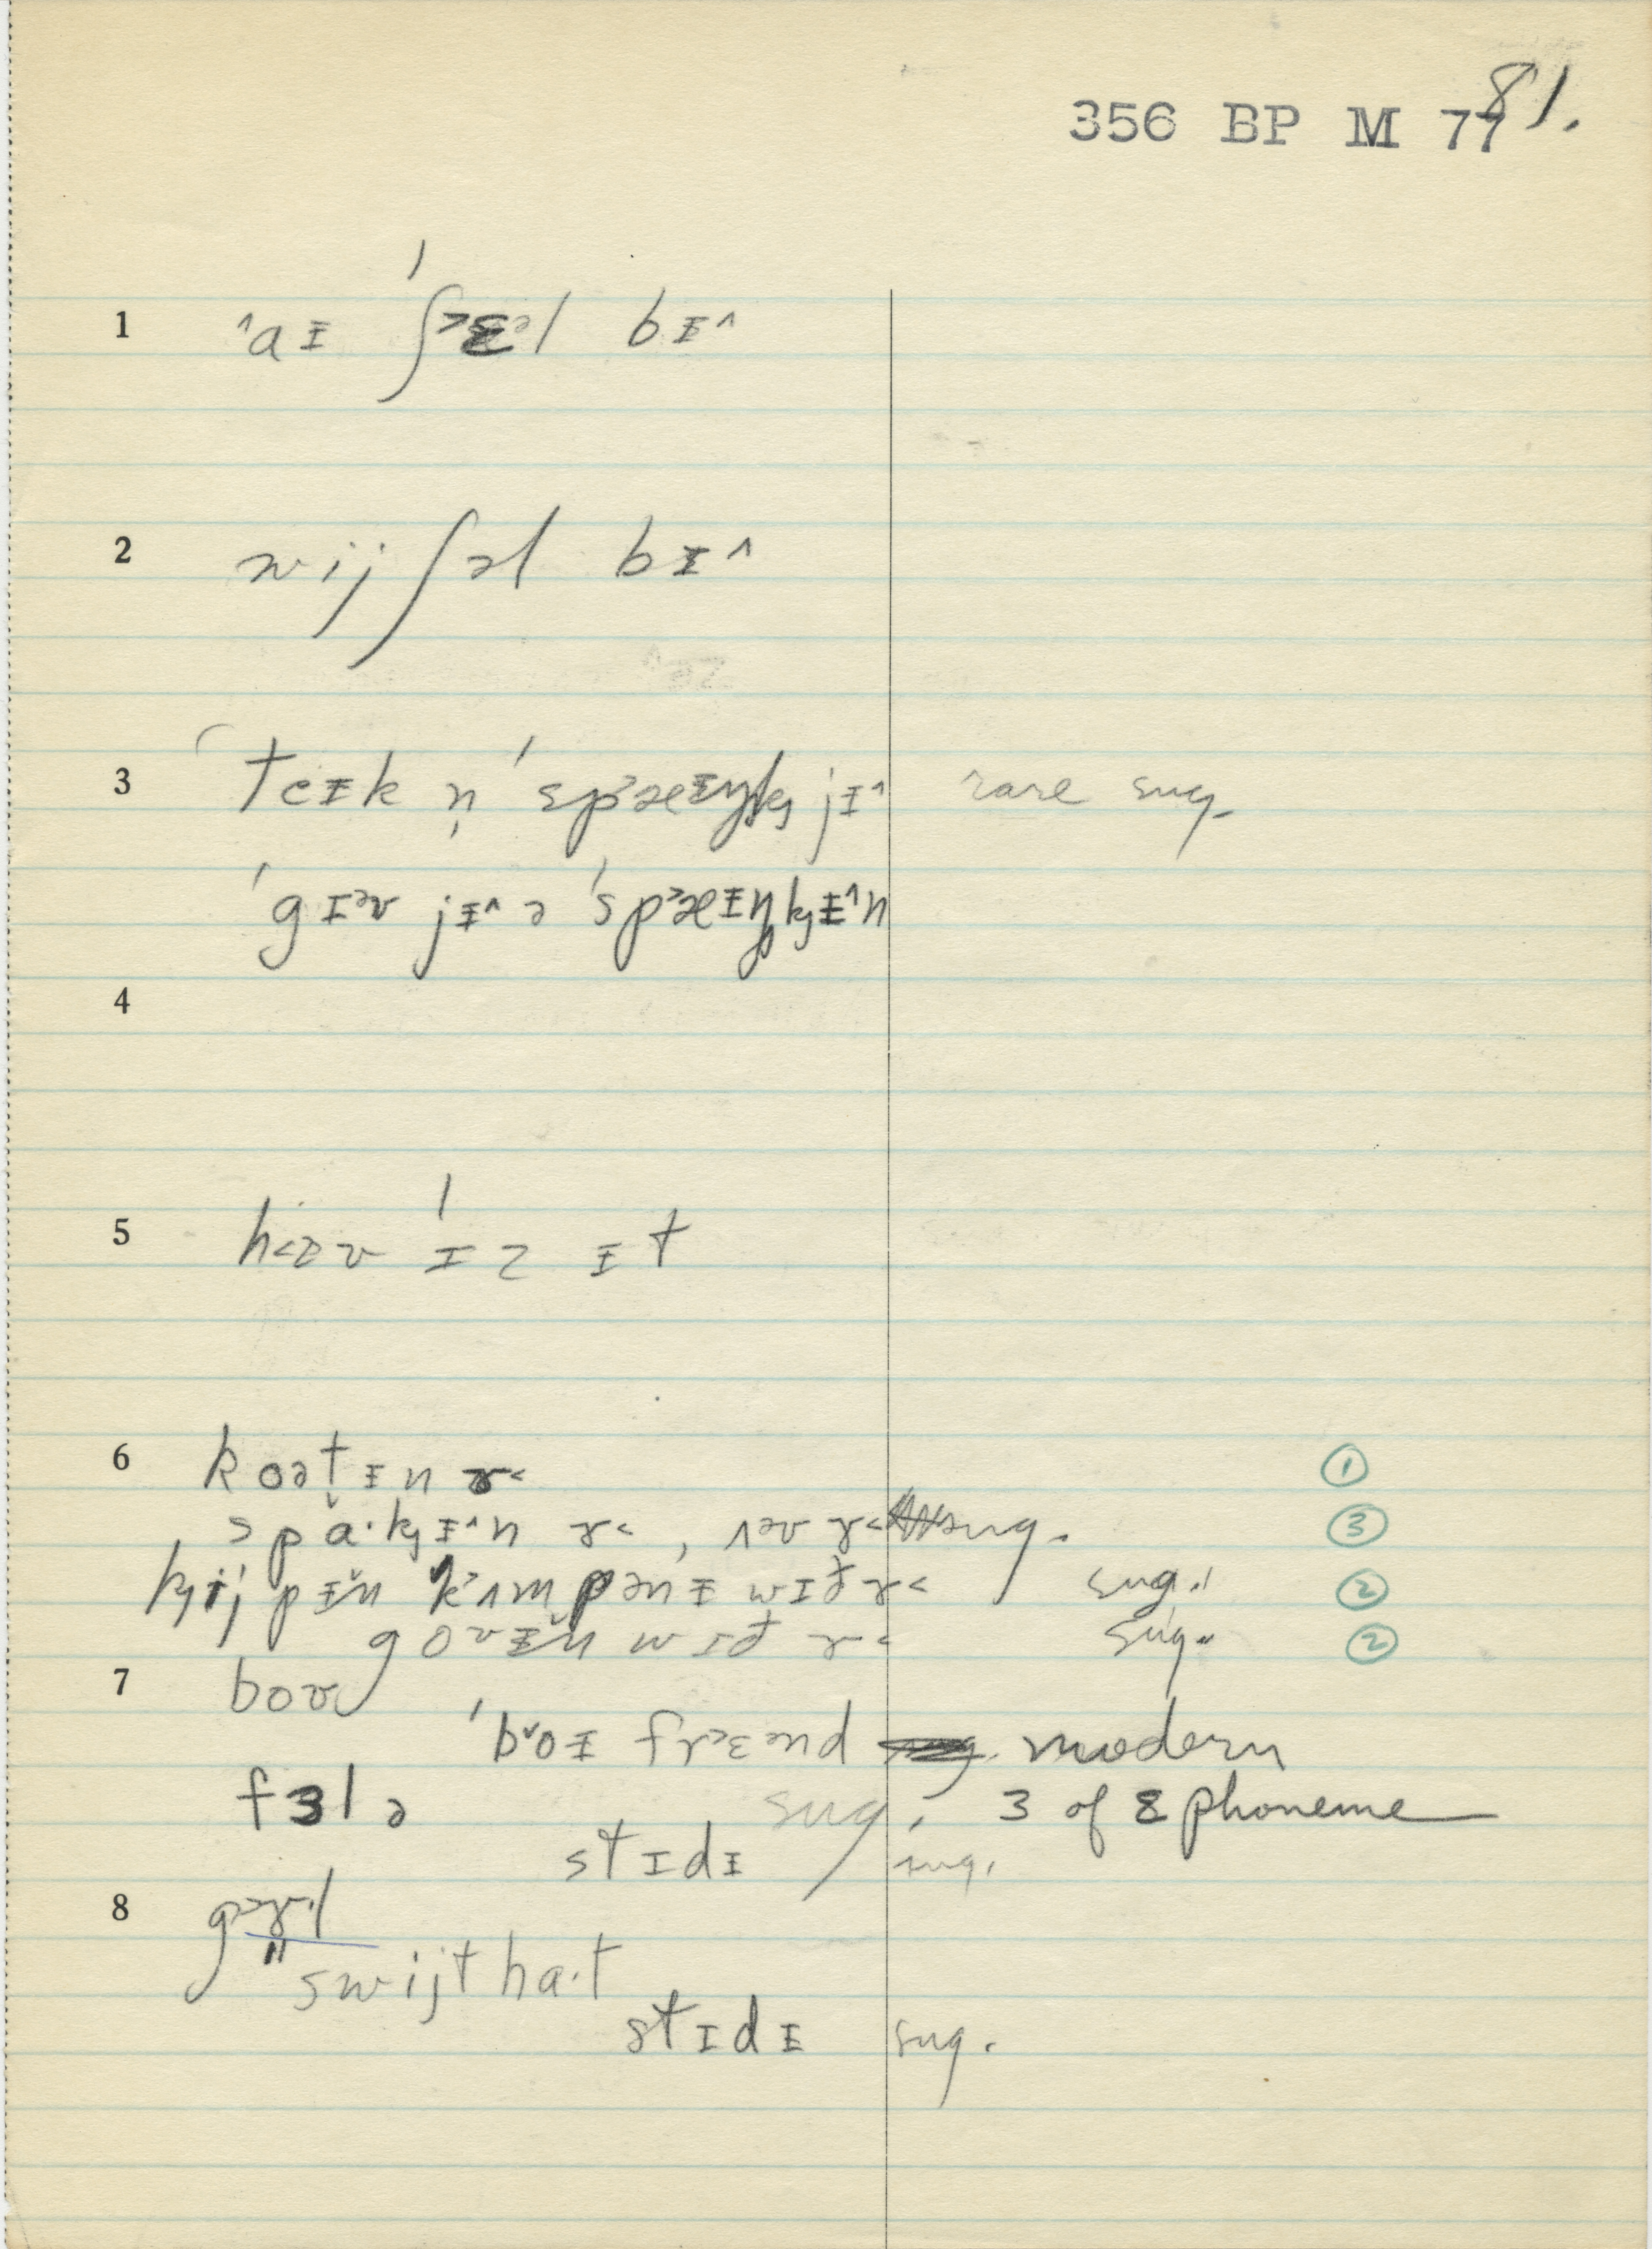 356 BP M 77 81.
1 ˄aᵻ ˈʃ˃ɛᵊl bᵻ˄
2 wij ʃəl bᵻ˄
3 ˈteᵻk n̩ ˈsp˃æᵻŋk̡ jᵻ˄ rare sug.
ˈgɪᵊv jᵻ˄ ə ˈsp˃æᵻŋk̡ᵻ˄n
4
5 ˈɪz ᵻt
6 koətᵻn ɤ˂ ①
spa·k̡ᵻ˄n ɤ˂, sug. ③
k̡ij pᵻn k˃ʌmpənᵻ wɪð ɤ˂ sug. ②
goʊᵻn wɪð ɤ˂ sug. ②
7 boʊ
ˈb˅oᵻ fr˃ɛᵊnd modern
fɜlə sug. ɜ of ɛ phoneme
stɪdᵻ sug.
8 g˃ɤ·l
swijt ha·t
stɪdᵻ sug.